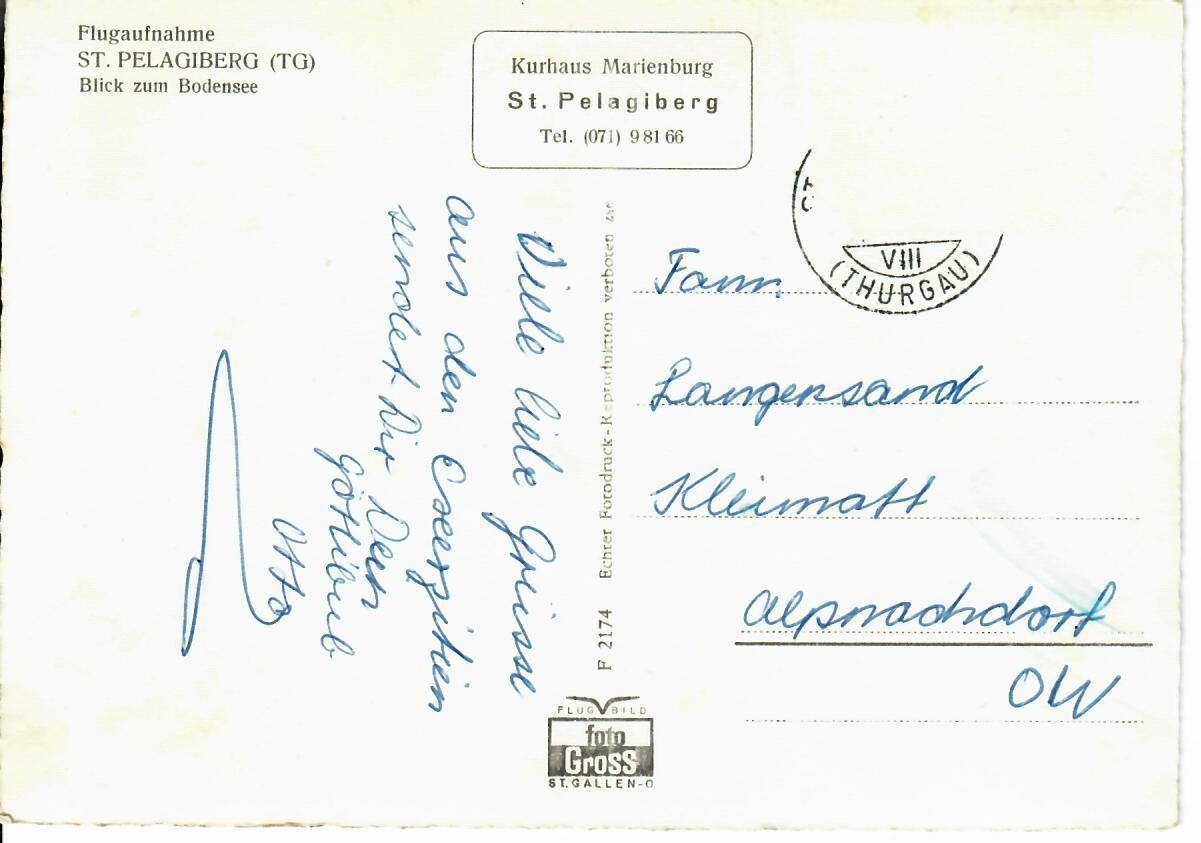 Flugaufnahme
ST. PELAGIBERG (TG)
Blick zum Bodensee
Kurhaus Marienburg
St. Pelagiberg
Tel. (071) 9 81 66
VIII
(THURGAU)
Viele liebe Grüsse
aus den Exerzitien
sendet Dir Dein
Göttibub
Otto
F 2174 Echter Fotodruck-Reproduktion verboten
Fam.
Langensand
Kleimatt
Alpnachdorf
OW
FLUG BILD
foto
Gross
ST. GALLEN-O